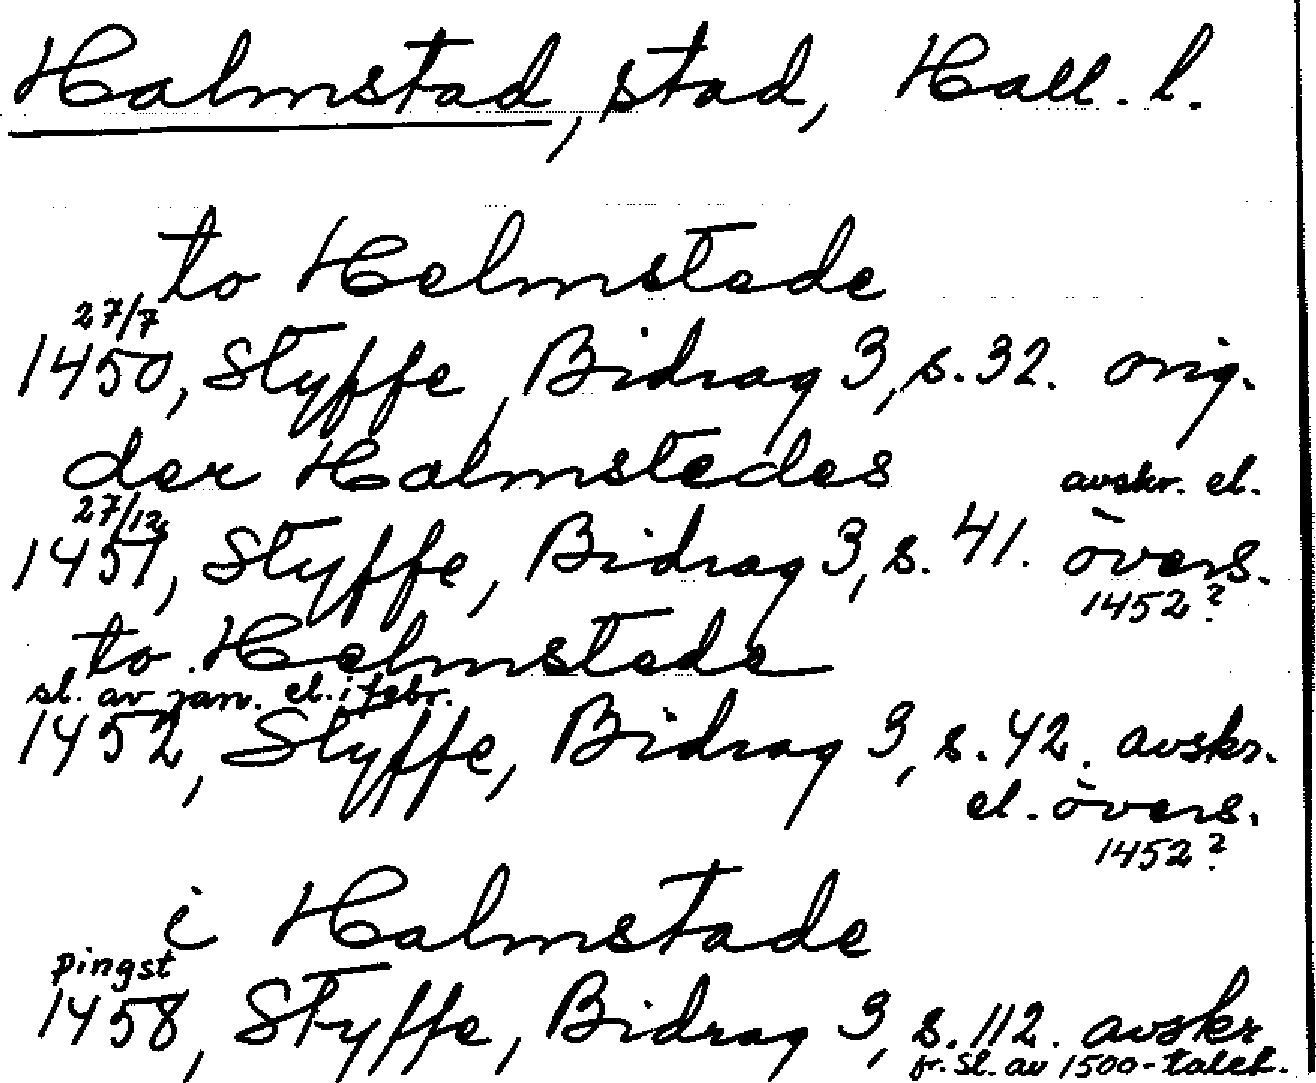 Halmstad, stad, Hall. l.
to Helmstede
27/7
1450, Styffe, Bidrag 3, s. 32. orig.
der Halmstedes avskr. el.
27/12
1451, Styffe, Bidrag 3, s. 41. övers.
1452?
to Helmstede
sl. av jan. el. i febr.
1452, Styffe, Bidrag 3, s. 42. avskr.
el. övers.
1452?
i Halmstade
pingst
1458, Styffe, Bidrag 3, s. 112. avskr
fr. sl. av 1500-talet.